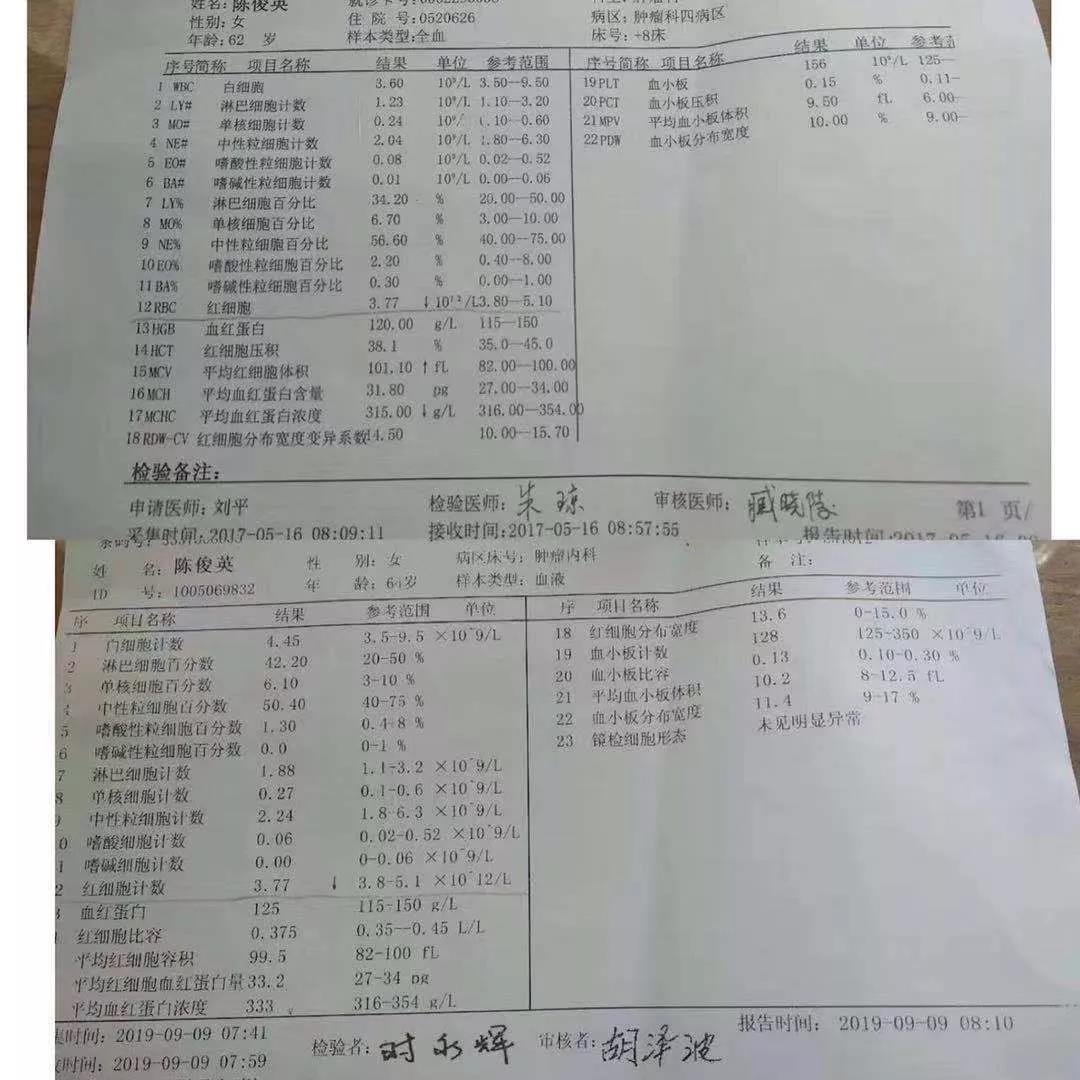 姓名: 陈俊英
性别: 女 住 院 号: 0520626 病区: 肿瘤科四病区
年龄: 62 岁 样本类型: 全血 床号: +8床
序号简称 项目名称 结果 单位 参考范围
1 WBC 白细胞 3.60 10⁹/L 3.50—9.50
2 LY# 淋巴细胞计数 1.23 10⁹/L 1.10—3.20
3 MO# 单核细胞计数 0.24 10⁹/ 0.10—0.60
4 NE# 中性粒细胞计数 2.04 10⁹/L 1.80—6.30
5 EO# 嗜酸性粒细胞计数 0.08 10⁹/L 0.02—0.52
6 BA# 嗜碱性粒细胞计数 0.01 10⁹/L 0.00—0.06
7 LY% 淋巴细胞百分比 34.20 % 20.00—50.00
8 MO% 单核细胞百分比 6.70 % 3.00—10.00
9 NE% 中性粒细胞百分比 56.60 % 40.00—75.00
10 EO% 嗜酸性粒细胞百分比 2.20 % 0.40—8.00
11 BA% 嗜碱性粒细胞百分比 0.30 % 0.00—1.00
12 RBC 红细胞 3.77 ↓ 10¹²/L 3.80—5.10
13 HGB 血红蛋白 120.00 g/L 115—150
14 HCT 红细胞压积 38.1 % 35.0—45.0
15 MCV 平均红细胞体积 101.10 ↑ fL 82.00—100.00
16 MCH 平均血红蛋白含量 31.80 pg 27.00—34.00
17 MCHC 平均血红蛋白浓度 315.00 ↓ g/L 316.00—354.00
18 RDW-CV 红细胞分布宽度变异系数 14.50 10.00—15.70
序号简称 项目名称 结果 单位 参考范
19 PLT 血小板 156 10⁹/L 125—
20 PCT 血小板压积 0.15 % 0.11—
21 MPV 平均血小板体积 9.50 fL 6.00—
22 PDW 血小板分布宽度 10.00 % 9.00—
检验备注:
申请医师: 刘平 检验医师: 朱琼 审核医师: 第1 页/
采集时间: 2017-05-16 08:09:11 接收时间: 2017-05-16 08:57:55 报告时间: 2017-05-16
姓 名: 陈俊英 性 别: 女 病区床号: 肿瘤内科 备 注:
ID 号: 1005069832 年 龄: 64岁 样本类型: 血液
序 项目名称 结果 参考范围 单位
1 白细胞计数 4.45 3.5-9.5 ×10^9/L
2 淋巴细胞百分数 42.20 20-50 %
3 单核细胞百分数 6.10 3-10 %
中性粒细胞百分数 50.40 40-75 %
5 嗜酸性粒细胞百分数 1.30 0.4-8 %
6 嗜碱性粒细胞百分数 0.0 0-1 %
7 淋巴细胞计数 1.88 1.1-3.2 ×10^9/L
8 单核细胞计数 0.27 0.1-0.6 ×10^9/L
9 中性粒细胞计数 2.24 1.8-6.3 ×10^9/L
0 嗜酸细胞计数 0.06 0.02-0.52 ×10^9/L
1 嗜碱细胞计数 0.00 0-0.06 ×10^9/L
2 红细胞计数 3.77 ↓ 3.8-5.1 ×10^12/L
3 血红蛋白 125 115-150 g/L
红细胞比容 0.375 0.35--0.45 L/L
平均红细胞容积 99.5 82-100 fL
平均红细胞血红蛋白量 33.2 27-34 pg
平均血红蛋白浓度 333 316-354 g/L
序 项目名称 结果 参考范围 单位
18 红细胞分布宽度 13.6 0-15.0 %
19 血小板计数 128 125-350 ×10^9/L
20 血小板比容 0.13 0.10-0.30 %
21 平均血小板体积 10.2 8-12.5 fL
22 血小板分布宽度 11.4 9-17 %
23 镜检细胞形态 未见明显异常
集时间: 2019-09-09 07:41 检验者: 时永辉 审核者: 胡泽波 报告时间: 2019-09-09 08:10
时间: 2019-09-09 07:59